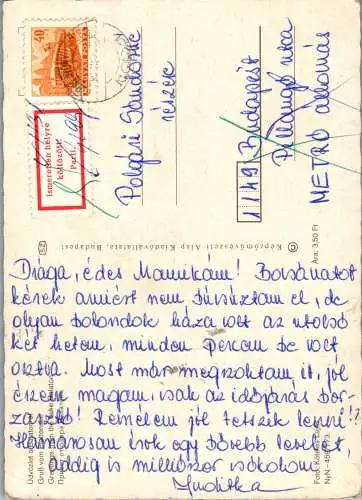 40
MAGYAR POSTA
Ismeretlen helyre
költözött
Parti.
Polgári Sándorné
részére
1149 Budapest
Pillangó utca
METRO állomás
Képzőművészeti Alap Kiadóvállalata, Budapest
Ára: 3,50 Ft
Drága, édes Mamikám! Bocsánatot
kérek amiért nem búcsúztam el, de
olyan bolondok háza volt az utolsó
két hetem, minden percem be volt
osztva. Most már megszoktam itt, jól
érzem magam, csak az időjárás bor-
zasztó! Remélem jól tetszik lenni!?
Hamarosan írok egy bővebb levelet,
addig is milliószor csókolom:
Juditka
Üdvözlet a
Gruß vom
Greetings from the Lake Balaton